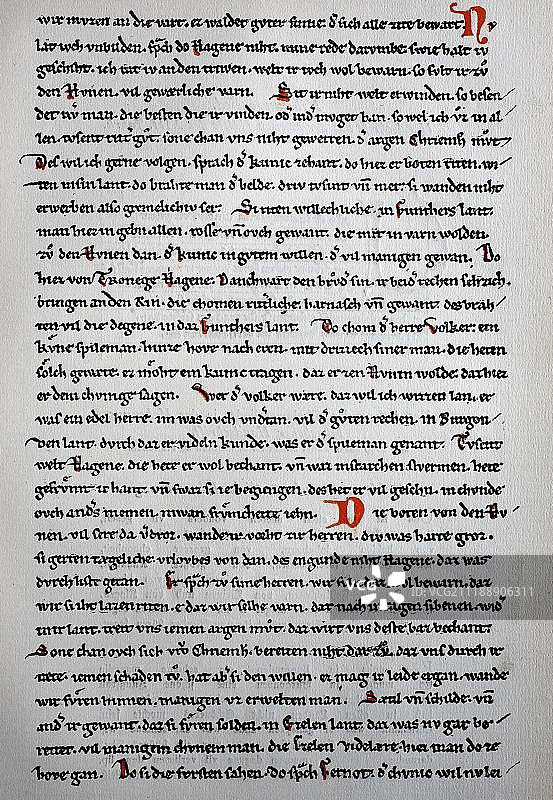 wir mvzen an die vart. er waldet gvter sinne. d sich alle zite bewart. Nv
lat iuch vnbilden. sp̄ch do Hagene niht. mine rede darvmbe. swie halt iv
geschiht. ich rat iv an den triwen. welt ir ivch wol bewarn. so svlt ir zv
den Hvnen. vil gewærliche varn. Sit ir niht welt erwinden. so besen
det iwˀ man. die besten die ir vinden. od ind mvget han. so wel ich vz in al
len. tvsent ritt gvt. sone chan vns niht gewerren. d argen Chriemh mvt
Des wil ich gerne volgen. sprach d kunic zehant. do hiez er boten riten. wi
ten in sin lant. do brahte man d helde. driv tvsent vn̄ mer. si wanden niht
erwerben also gremelichiv ser. Si riten willechliche. in Gunthers lant.
man hiez in gebn allen. rosse vn̄ ovch gewant. die mit in varn wolden.
zv den Hvnen dan. d kunic in gvtem willen. d vil manigen gewan. Do
hiez von Tronege Hagene. Danchwart den brvd sin. ir beid rechen sehzich.
bringen an den Rin. die chomen ritt̄liche. harnasch vn̄ gewant. des brah
ten vil die degene. in daz Gunthers lant. Do chom d herre Volker. ein
kvne spileman. hin ze hove nach eren. mit drizzech siner man. die heten
solch gewæte. ez moht ein kunic tragen. daz er zen Hvnin wolde. daz hiez
er dem chvnige sagen. Wer d volker wære. daz wil ich wizzen lan. er
was ein edel herre. im was ovch vndtan. vil d gvten rechen. in Bvrgon
den lant. dvrch daz er videln kunde. was er d spileman genant. Tvsent
welt Hagene. die hete er wol bechant. vn̄ waz in starchen stvrmen. hete
gefrvmt ir hant. vn̄ swaz si ie begiengen. des het er vil gesehn. in chvnde
ovch ands niemen. niwan frvmecheite iehn. Die boten von den Hv
nen. vil sere da vdroz. wande ir vorht zir herren. div was harte groz.
si gerten tægeliche. vrlovbes von dan. des engunde niht Hagene. daz was
dvrch liste getan. Er sp̄ch zv sine herren. wir svln wol bewarn. daz
wir si iht lazen riten. e daz wir selbe varn. dar nach in tagen sibenen. wid
in ir lant. treit vns iemen argen mvt. daz wirt vns deste baz bechant.
Sone chan ovch sich vrov Chriemh. bereiten niht dar zv. daz vns dvrch ir
ræte. iemen schaden tv. hat ab si den willen. ez mag ir leide ergan. wande
wir fvren hinnen. manigen vz erwelten man. Sætel vn̄ schilde. vn̄
and ir gewant. daz si fvren solden. in Ezelen lant. daz was nv gar be
reitet. vil manigem chvnem man. die Ezelen videlære. hiez man do ze
hove gan. Do si die fvrsten sahen. do sp̄ch Gernot. d chvnic wil nv lei
ID:VCG211188906311